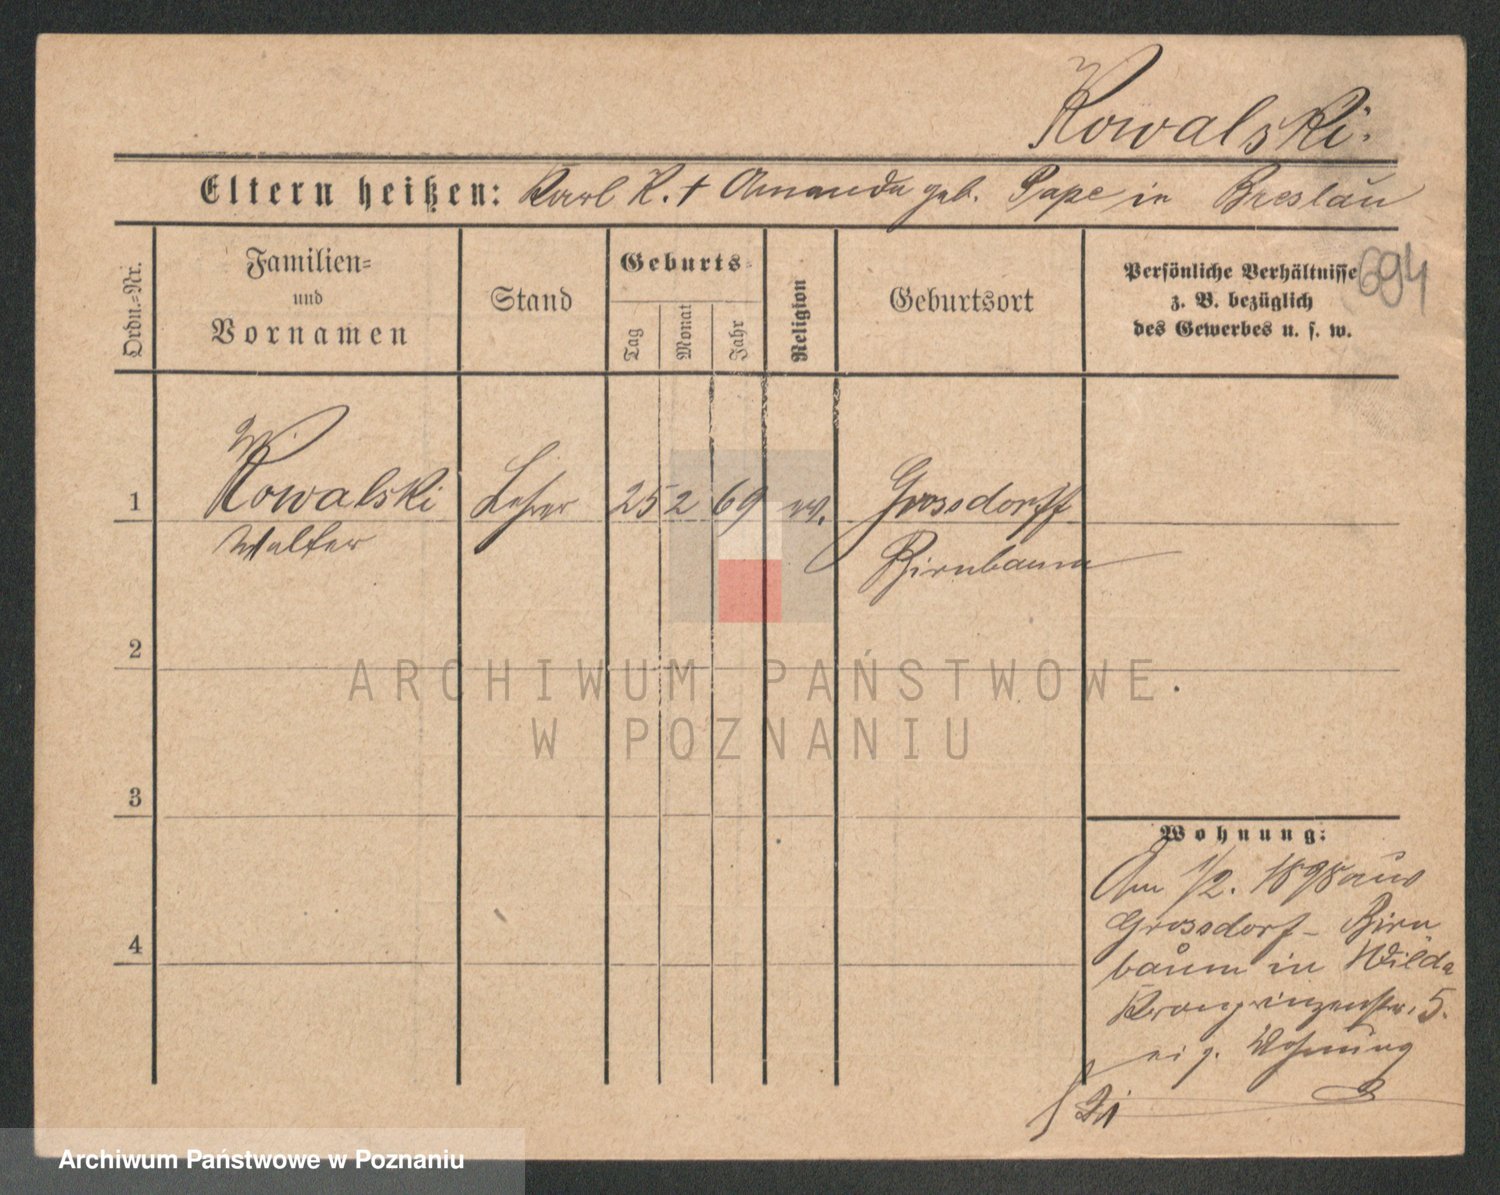 Kowalski.
Eltern heißen: Karl K. + Amanda geb. Pape in Breslau
Ordn.=Nr.
Familien=
und
Vornamen
Stand
Geburts=
Tag
Monat
Jahr
Religion
Geburtsort
Persönliche Verhältnisse
z. B. bezüglich
des Gewerbes u. s. w.
694
1
Kowalski Lehrer 25 2 69 ev. Grossdorff
Walter Birnbaum
2
ARCHIWUM PAŃSTWOWE
W POZNANIU
3
Wohnung:
Am 1/2. 1898 aus
Grossdorf- Birn
baum in Wilda
Kronprinzenstr. 5.
eig. Wohnung
4
Archiwum Państwowe w Poznaniu